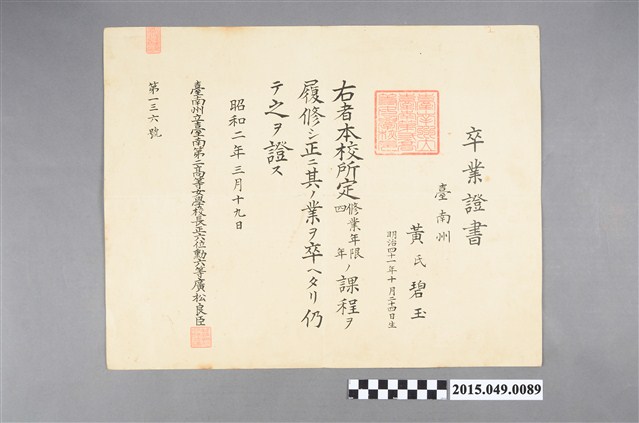 卒業證書
臺南州
黃氏碧玉
明治四十一年十月二十四日生
右者本校所定修業年限四年ノ課程ヲ
履修シ正ニ其ノ業ヲ卒ヘタリ仍
テ之ヲ證ス
昭和二年三月十九日
臺南州立臺南第二高等女學校長正六位勳六等廣松良臣
第一三六號
2015.049.0089